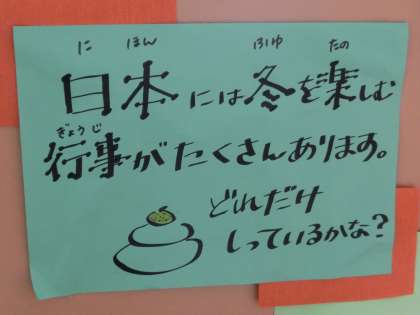 に ほん ふゆ たの
日本には冬を楽しむ
ぎょうじ
行事がたくさんあります。
どれだけ
しっているかな?